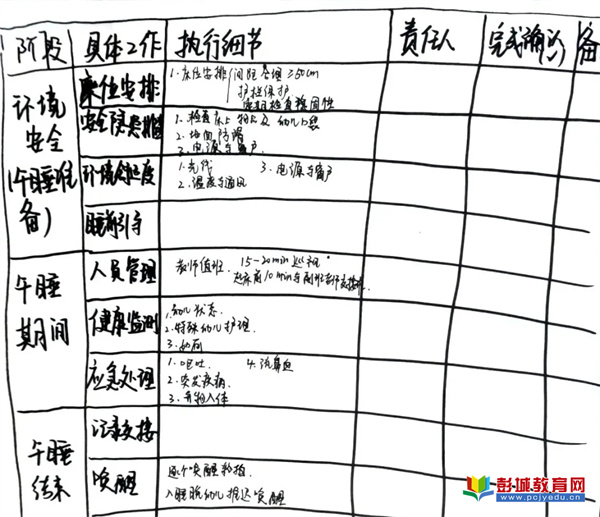 阶段 具体工作 执行细节 责任人 完成确认 备
环境安全(午睡准备)
床位安排
1.床位安排/间距合理≥50cm
护栏保护
定期检查稳固性
安全隐患排查
1.检查床上物品及幼儿口袋
2.地面防滑
3.电源与窗户
环境舒适度
1.光线 3.电源与窗户
2.温度与通风
睡前引导
午睡期间
人员管理
老师值班. 15-20min巡视.
起床前10min与副班老师交接班
健康监测
1.幼儿状态.
2.特殊幼儿护理.
应急处理
1.呕吐 4.流鼻血
2.突发疾病.
3.异物入体
午睡结束
记录交接
唤醒
逐个唤醒轻拍.
入睡晚幼儿推迟唤醒
彭城教育网
www.pcjyedu.cn